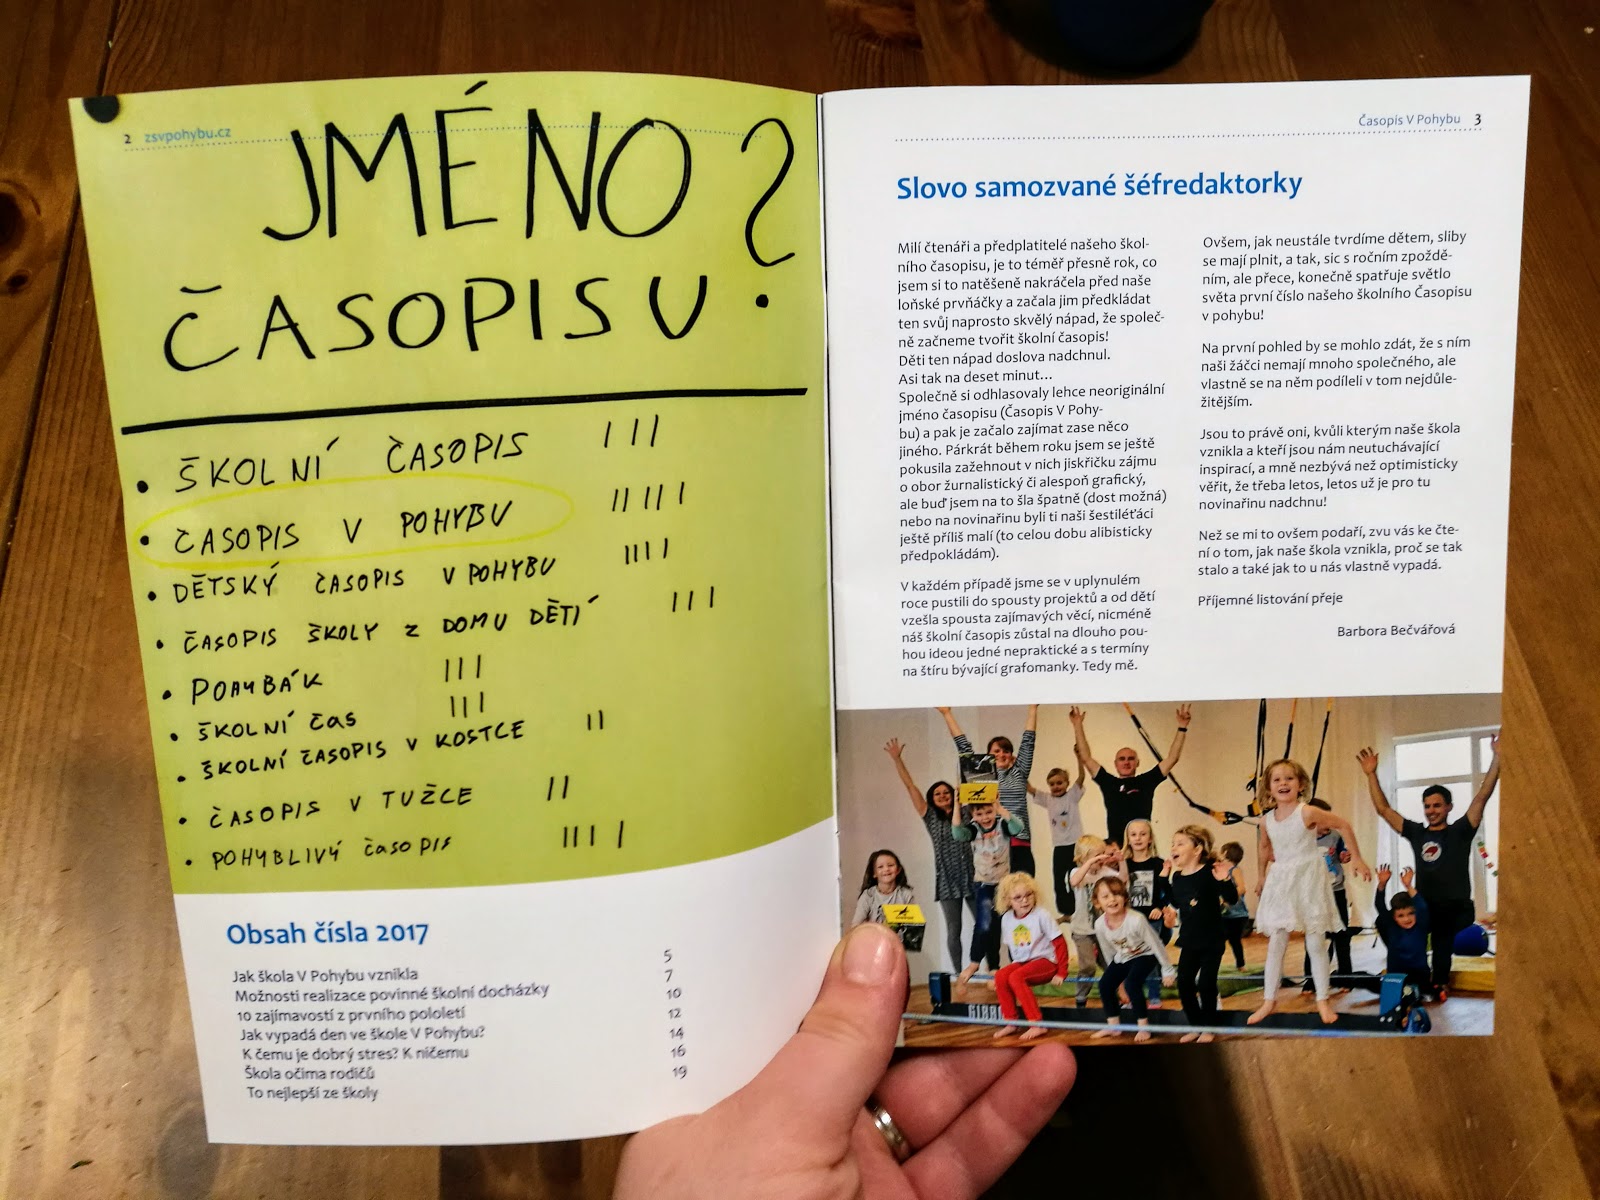 2 zsvpohybu.cz
JMÉNO
ČASOPISU?
• ŠKOLNÍ ČASOPIS III
• ČASOPIS V POHYBU II III I
• DĚTSKÝ ČASOPIS V POHYBU IIII
• ČASOPIS ŠKOLY Z DOMU DĚTÍ III
• POHYBÁK III
• ŠKOLNÍ ČAS III
• ŠKOLNÍ ČASOPIS V KOSTCE II
• ČASOPIS V TUŽCE II
• POHYBLIVÝ ČASOPIS III I
Obsah čísla 2017
Jak škola V Pohybu vznikla 5
Možnosti realizace povinné školní docházky 7
10 zajímavostí z prvního pololetí 10
Jak vypadá den ve škole V Pohybu? 12
K čemu je dobrý stres? K ničemu 14
Škola očima rodičů 16
To nejlepší ze školy 19
Časopis V Pohybu 3
Slovo samozvané šéfredaktorky
Milí čtenáři a předplatitelé našeho škol-
ního časopisu, je to téměř přesně rok, co
jsem si to natěšeně nakráčela před naše
loňské prvňáčky a začala jim předkládat
ten svůj naprosto skvělý nápad, že společ-
ně začneme tvořit školní časopis!
Děti ten nápad doslova nadchnul.
Asi tak na deset minut...
Společně si odhlasovaly lehce neoriginální
jméno časopisu (Časopis V Pohy-
bu) a pak je začalo zajímat zase něco
jiného. Párkrát během roku jsem se ještě
pokusila zažehnout v nich jiskřičku zájmu
o obor žurnalistický či alespoň grafický,
ale buď jsem na to šla špatně (dost možná)
nebo na novinařinu byli ti naši šestiléťáci
ještě příliš malí (to celou dobu alibisticky
předpokládám).
V každém případě jsme se v uplynulém
roce pustili do spousty projektů a od dětí
vzešla spousta zajímavých věcí, nicméně
náš školní časopis zůstal na dlouho pou-
hou ideou jedné nepraktické a s termíny
na štíru bývající grafomanky. Tedy mě.
Ovšem, jak neustále tvrdíme dětem, sliby
se mají plnit, a tak, sic s ročním zpoždě-
ním, ale přece, konečně spatřuje světlo
světa první číslo našeho školního Časopisu
v pohybu!
Na první pohled by se mohlo zdát, že s ním
naši žáčci nemají mnoho společného, ale
vlastně se na něm podíleli v tom nejdůle-
žitějším.
Jsou to právě oni, kvůli kterým naše škola
vznikla a kteří jsou nám neutuchávající
inspirací, a mně nezbývá než optimisticky
věřit, že třeba letos, letos už je pro tu
novinařinu nadchnu!
Než se mi to ovšem podaří, zvu vás ke čte-
ní o tom, jak naše škola vznikla, proč se tak
stalo a také jak to u nás vlastně vypadá.
Příjemné listování přeje
Barbora Bečvářová
GIBBON